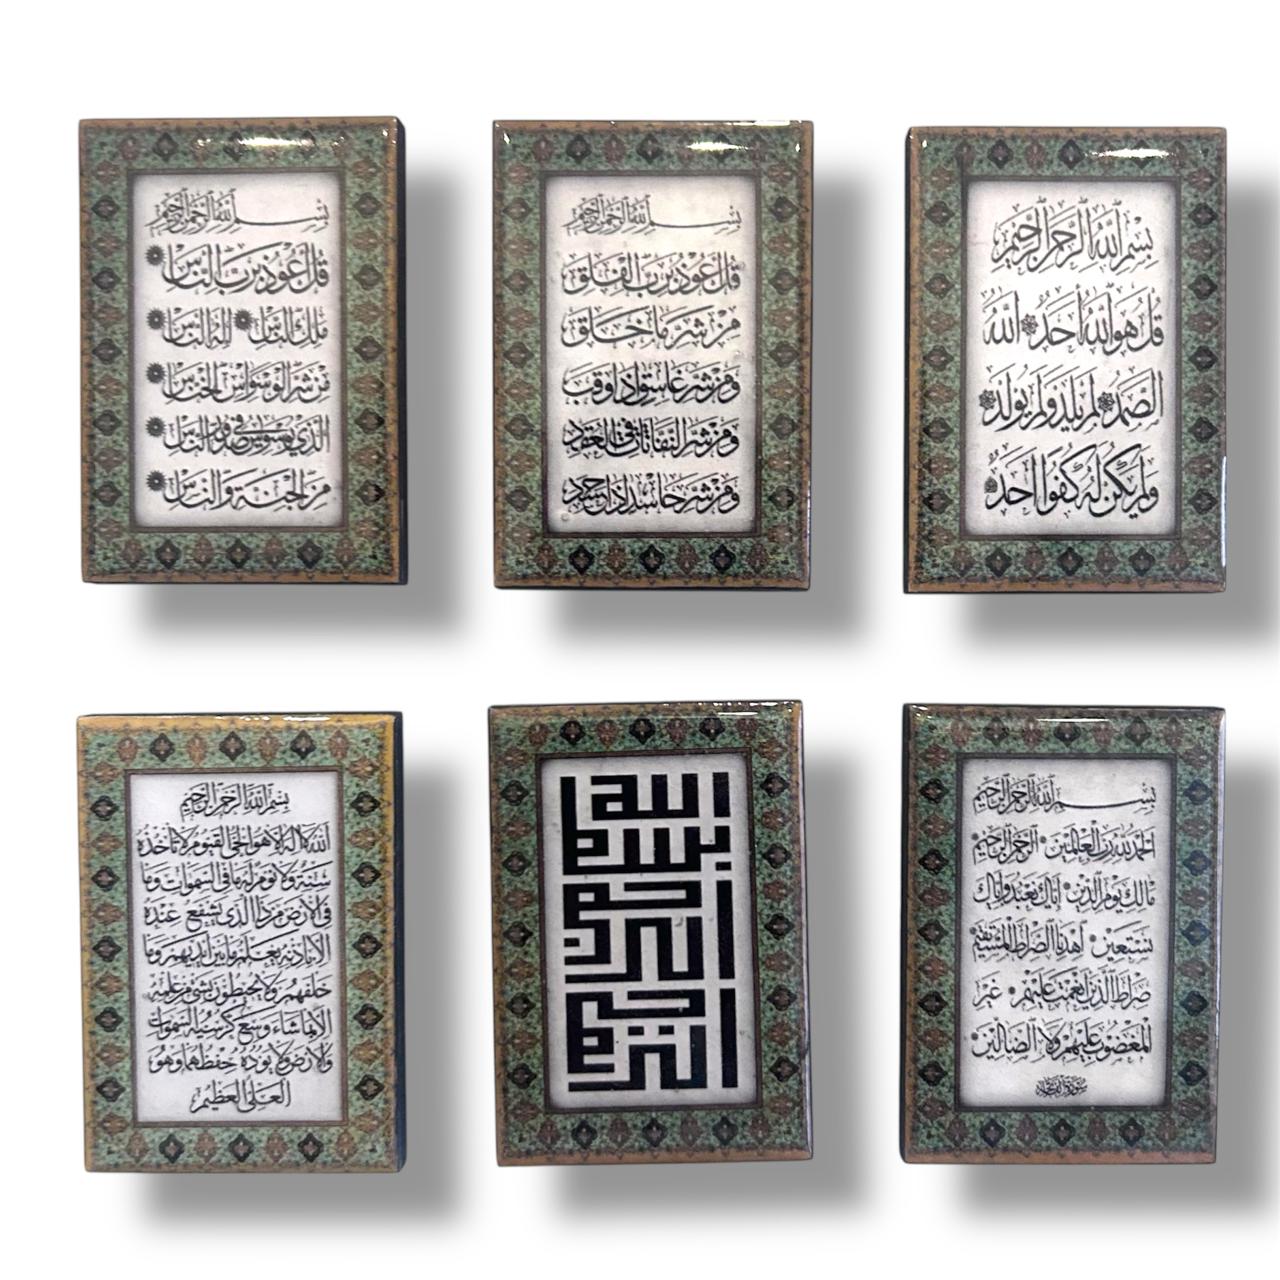 بسم الله الرحمن الرحيم
قل أعوذ برب الناس
ملك الناس إله الناس
من شر الوسواس الخناس
الذي يوسوس في صدور الناس
من الجنة والناس
بسم الله الرحمن الرحيم
قل أعوذ برب الفلق
من شر ما خلق
ومن شر غاسق إذا وقب
ومن شر النفاثات في العقد
ومن شر حاسد إذا حسد
بسم الله الرحمن الرحيم
قل هو الله أحد الله
الصمد لم يلد ولم يولد
ولم يكن له كفوا أحد
بسم الله الرحمن الرحيم
الله لا إله إلا هو الحي القيوم لا تأخذه
سنة ولا نوم له ما في السموات وما
في الأرض من ذا الذي يشفع عنده
إلا بإذنه يعلم ما بين أيديهم وما
خلفهم ولا يحيطون بشيء من علمه
إلا بما شاء وسع كرسيه السموات
والأرض ولا يؤده حفظهما وهو
العلي العظيم
بسم الله
الرحمن
الرحيم
بسم الله الرحمن الرحيم
الحمد لله رب العالمين الرحمن الرحيم
مالك يوم الدين إياك نعبد وإياك
نستعين اهدنا الصراط المستقيم
صراط الذين أنعمت عليهم غير
المغضوب عليهم ولا الضالين
سورة الفاتحة